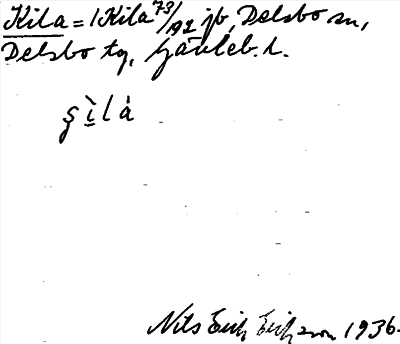 Kila = 1 Kila 73/192 jb, Delsbo sn,
Delsbo tg, Gävleb. l.
g̣ ì̱ l à
Nils Erik Eriksson 1936.